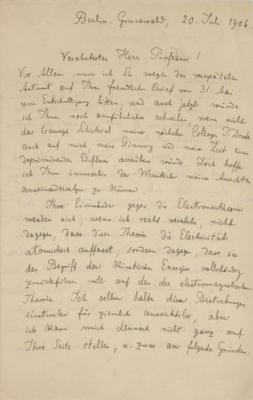 Berlin-Grunewald, 20. Juli 1906.
Verehrtester Herr Professor!
Vor Allem muss ich Sie wegen der verspäteten
Antwort auf Ihren freundlichen Brief vom 31. Mai
um Entschuldigung bitten, und auch jetzt würde
ich Ihnen noch ausführlicher schreiben, wenn nicht
das traurige Schicksal meines nächsten Collegen P. Drude
auch auf mich, meine Stimmung und meine Zeit einen
deprimirenden Einfluss ausüben würde. Doch hoffe
ich Ihnen immerhin das Wesentliche meiner Ansichten
auseinandersetzen zu können.
Ihre Einwände gegen die Elektronentheorie
wenden sich, wenn ich recht verstehe, nicht
dagegen, dass diese Theorie die Electricität
atomistisch auffasst, sondern dagegen, dass sie
den Begriff der kinetischen Energie vollständig
zurückführen will auf den der electromagnetischen
Theorie. Ich selber halte diese Bestrebungen
einstweilen für ziemlich aussichtslos, aber
ich kann mich dennoch nicht ganz auf
Ihre Seite stellen, u. zwar aus folgenden Gründen.